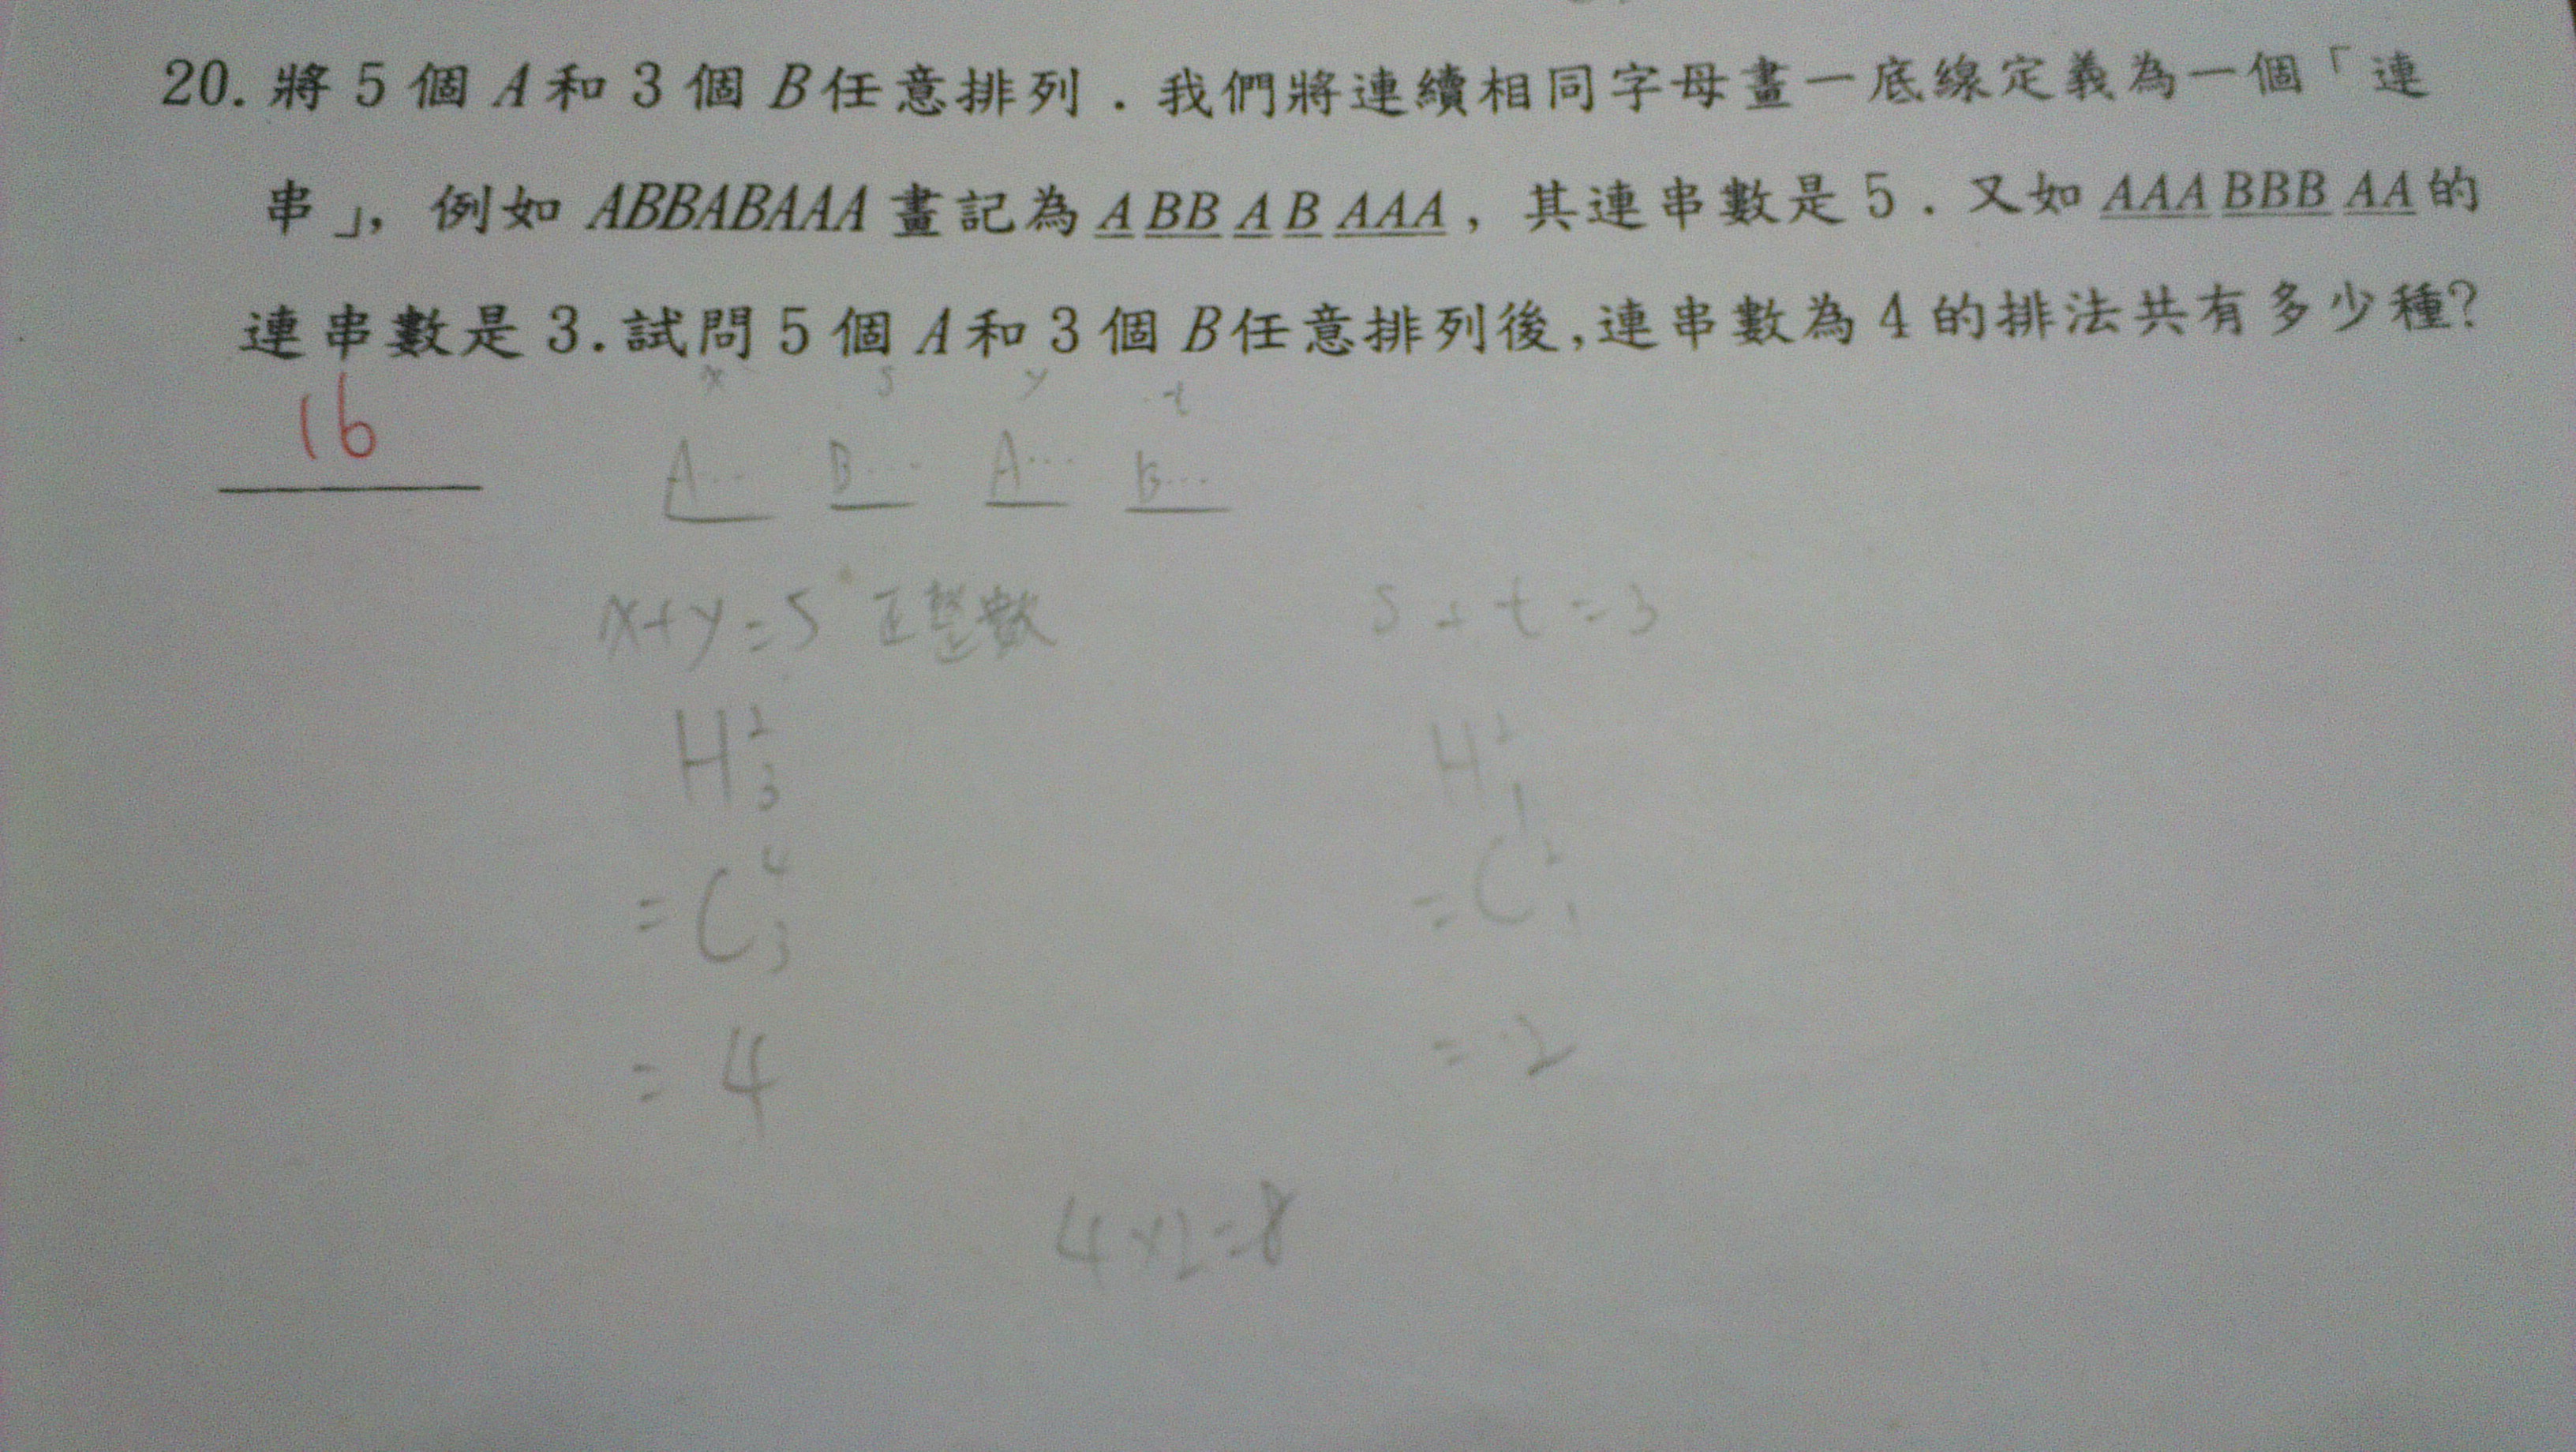 20. 將 5 個 A 和 3 個 B 任意排列．我們將連續相同字母畫一底線定義為一個「連
串」，例如 ABBABAAA 畫記為 A BB A B AAA，其連串數是 5．又如 AAA BBB AA 的
連串數是 3．試問 5 個 A 和 3 個 B 任意排列後，連串數為 4 的排法共有多少種？
x s y t
16
A… B… A… B…
x+y=5 正整數 s+t=3
H²₃ H²₁
=C⁴₃ =C²₁
=4 =2
4×2=8